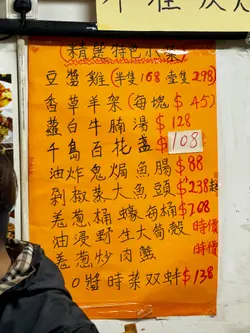 (精選特色小菜)
豆醬雞(半隻168 壹隻298)
香草羊架(每塊$45)
蘿白牛腩湯$128
千島百花盞$108
油炸鬼焗魚腸$88
剁椒蒸大魚頭$238起
羌蔥桶蠔每桶$208
油浸野生大筍殼 時價
羌蔥炒肉蟹 時價
O醬時菜双蚌$138